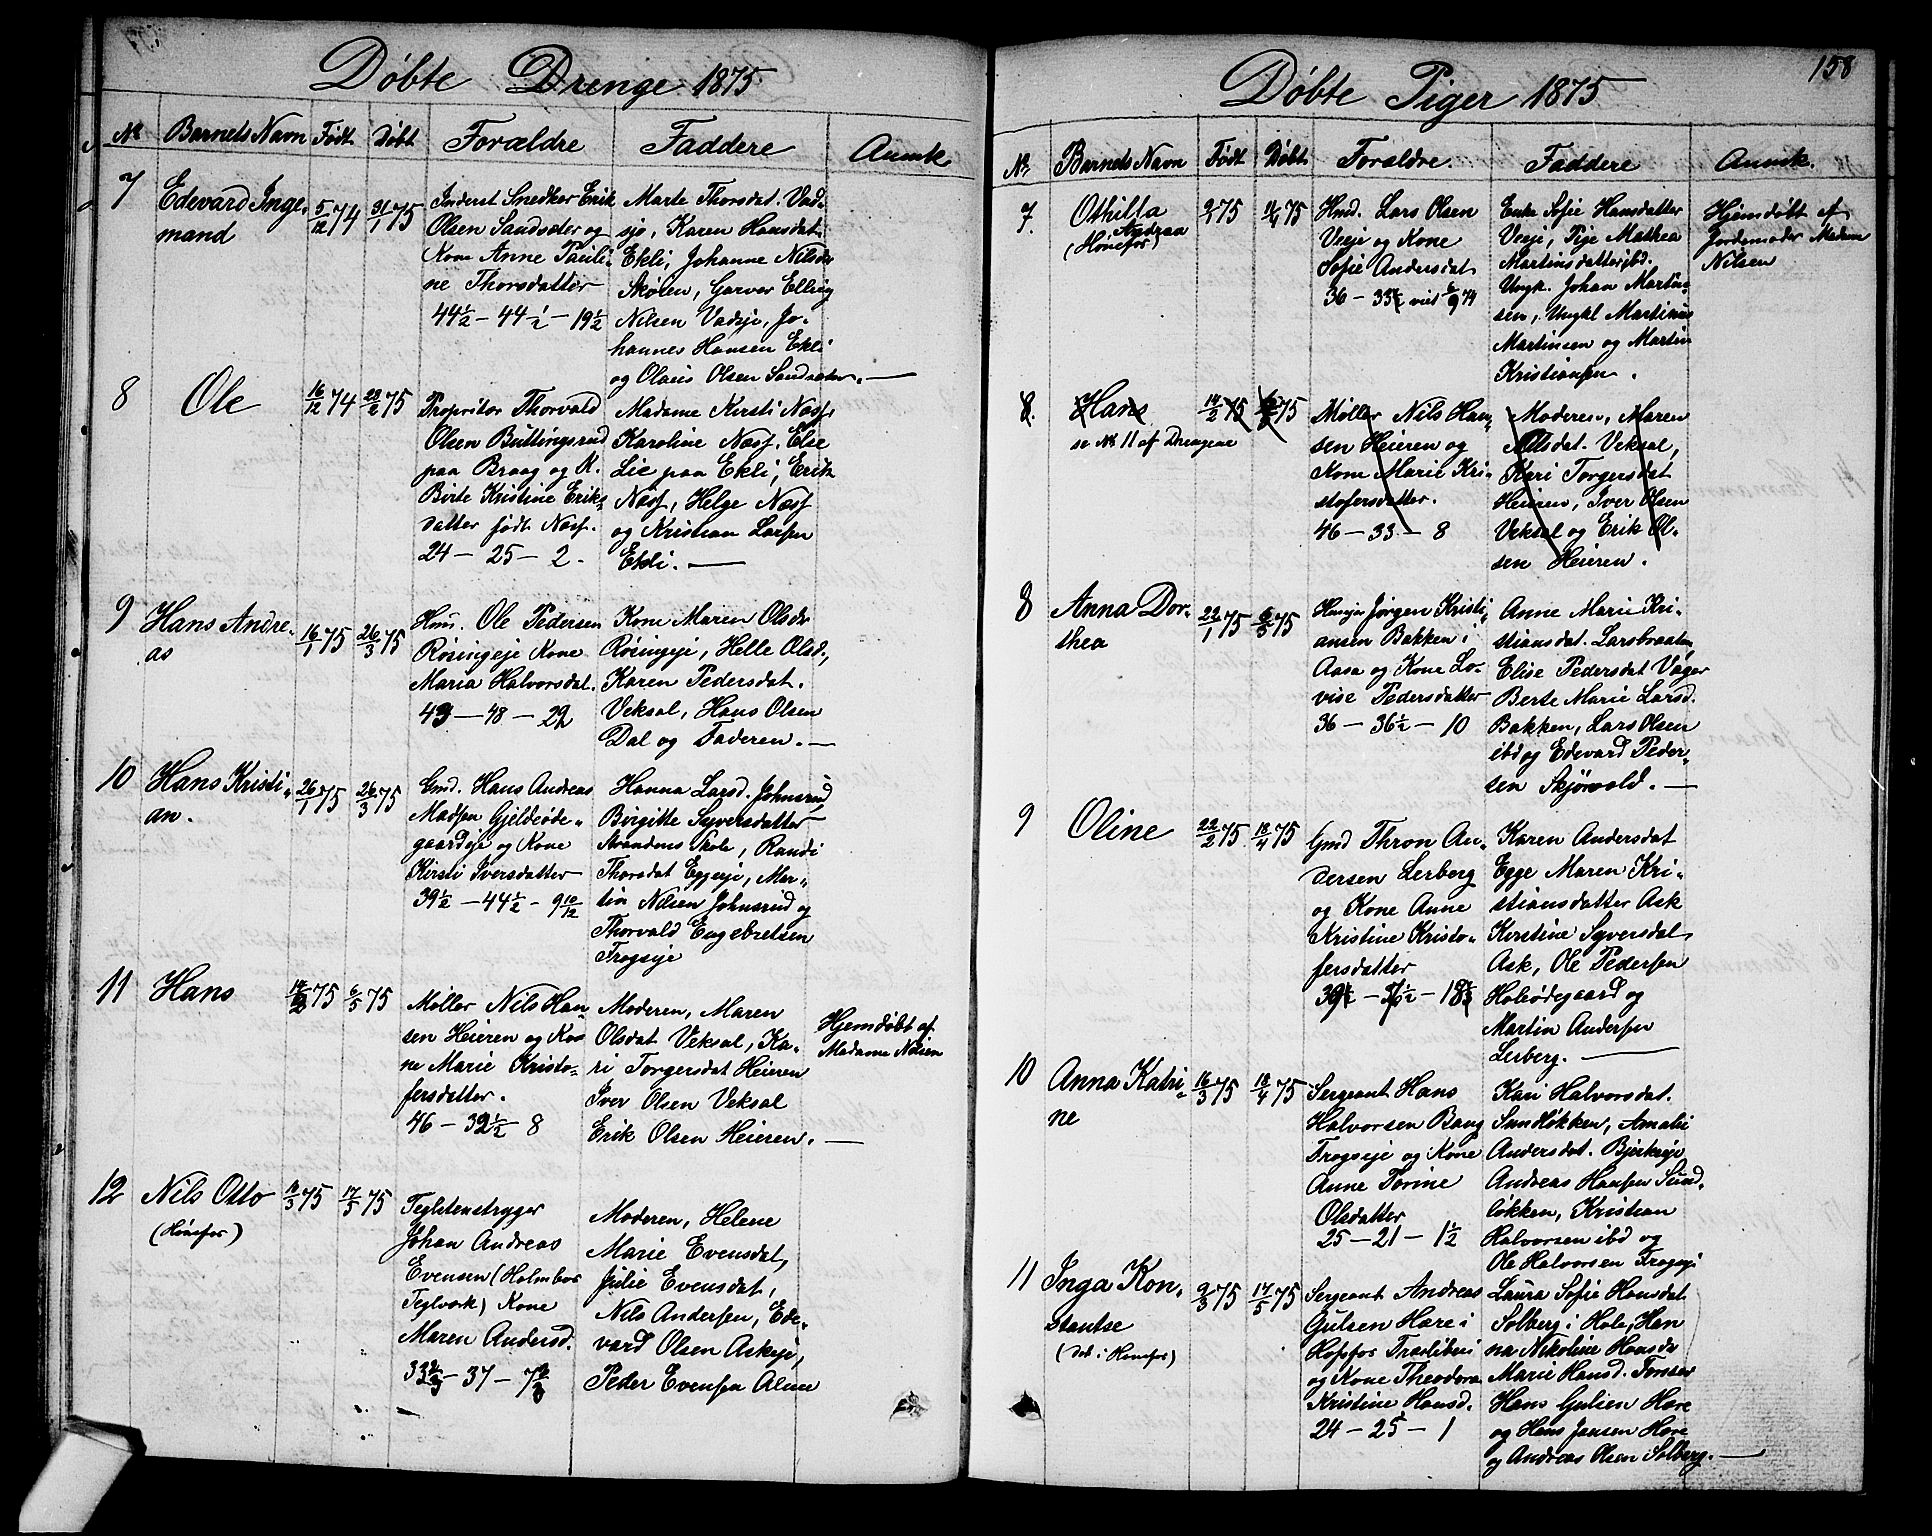 Døbte Drenge 1875
No Barnets Navn Født Døbt Forældre Faddere Anmk
7 Edevard Inge-
mand
5/12 74 31/1 75
Inderst Snedker Erik
Olsen Sandsæter og
Kone Anne Pauli-
ne Thorsdatter
44½ - 44½ - 19½
Marte Thorsdat. Vad-
sje, Karen Hansdat.
Ekli, Johanne Nilsdr
Skøien, Garver Elling
Nilsen Vadsje, Jo-
hannes Hansen Ekli
og Olaus Olsen Sandsæter.
8 Ole 16/12 74 75
Proprietør Thorvald
Olsen Buttingsrud
paa Braag og K.
Birte Kristine Eriks-
datter født Næss.
24 - 25 - 2.
Madame Kirsti Næss
Karoline Næss, Else
Lie paa Ekli, Erik
Næss, Helge Næss
og Kristian Larssen
Ekli.
9 Hans Andre-
as
16/1 75 26/3 75
Hm. Ole Pedersen
Røsingeje Kone
Maria Halvorsdat.
43 - 48 - 22
Kone Maren Olsdr
Røsingeje, Helle Olsd.,
Karen Pedersdat.
Veksal, Hans Olsen
Dal og Faderen.
10 Hans Kristi-
an.
26/1 75 26/3 75
Gmd. Hans Andreas
Madssen Gjeldeøde-
gaardeje og Kone
Kirsti Iversdatter
39½ - 44½ - 9 10/12
Hanna Larsd. Johnsrud
Birgitte Syversdatter
Strandens Skole, Randi
Thorsdat Eggeeje, Mar-
tin Nilsen Johnsrud og
Thorvald Engebretsen
Frogseje
11 Hans 14/2 75 6/5 75
Møller Nils Han-
sen Heieren og Ko-
ne Marie Kristo-
fersdatter.
46 - 32½ - 8
Moderen, Maren
Olsdat Veksal, Ka-
ri Torgersdat Heieren
Iver Olsen Veksal
Erik Olsen Heieren.
Hjemdøbt af
Madame Nilsen
12 Nils Otto
(Hønefos)
75 17/5 75
Teglstenstryger
Johan Andreas
Evensen (Holmbo
Teglverk) Kone
Maren Andersd.
Moderen, Helene
Marie Evensdat,
Julie Evensdat,
Nils Anderssen, Ede-
vard Olsen Askeje,
Peder Evenssen Alme
158
Døbte Piger 1875
No Barnets Navn Født Døbt Forældre Faddere Anmk.
7. Othilla
Andrea
(Hønefos)
75 75
Hmd. Lars Olsen
Veeje og Kone
Sofie Andersdat
36 - 33½ viet 6/9 74
Enke Sofie Hansdatter
Veeje, Pige Mathea
Martinsdatter ibd.
Ungk. Johan Martin-
sen, Ungkl Martinius
Martinsen og Martin
Kristiansen.
Hjemdøbt af
Jordemoder Madame
Nilsen
8. Hans 14/2 75 75
se No 11 af Drengene
Møller Nils Han-
sen Heieren og
Kone Marie Kri-
stofersdatter.
46 - 33 - 8
Moderen, Maren
Olsdat. Veksal,
Kari Torgersdat
Heieren, Iver Olsen
Veksal og Erik Ol-
sen Heieren.
8 Anna Dor-
thea
22/1 75 75
Jørgen Kristi-
ansen Bakken i
Aasa og Kone Lo-
vise Pedersdatter
36 - 36½ - 10
Anne Marie Kri-
stiansdat. Larsbraaten,
Elise Pedersdat Vager
Berte Marie Larsd.
Bakken, Lars Olsen
ibd og Edevard Peder-
sen Skjørvold.
9 Oline 22/2 75 18/4 75
Gmd Thron An-
dersen Lerberg
og Kone Anne
Kristine Kristo-
fersdatter
Karen Andersdat
Egge Maren Kri-
stiansdatter Ask
Kirstine Syversdat,
Ask, Ole Pedersen
Holeødegaard og
Martin Anderssen
Lerberg.
10 Anna Katri-
ne
16/3 75 18/4 75
Sergeant Hans
Halvorsen Bang
Frogseje og Kone
Anne Torine
Olsdatter
25 - 21 - 1½
Kari Halvorsdat.
Sundløkken, Amalie
Andersdat. Bjerkeje
Andreas Hanssen Sund-
løkken, Kristian
Halvorsen ibd og
Ole Halvorsen Frogseje
11 Inga Kon-
stantse
(døb. i Hønefos)
9/3 75 17/5 75
Sergeant Andreas
Gulsen Hære i
Hofsfos Træsliberi
og Kone Theodora
Kristine Hansd.
24 - 25 - 1
Laura Sofie Hansdat
Solberg i Hole, Han-
na Nikoline Hansdr
Marie Hansd. Fonser
Hans Gulsen Hære
og Hans Jensen Hære
og Andreas Olsen Solberg.